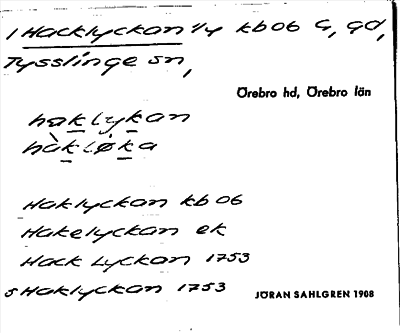 1 Hacklyckan 1/4 kb 06 G, gd,
Tysslinge sn,
Örebro hd, Örebro län
haklykan
hàkløka
Haklyckan kb 06
Hakelyckan ek
Hack Lyckan 1753
s Haklyckan 1753
JÖRAN SAHLGREN 1908